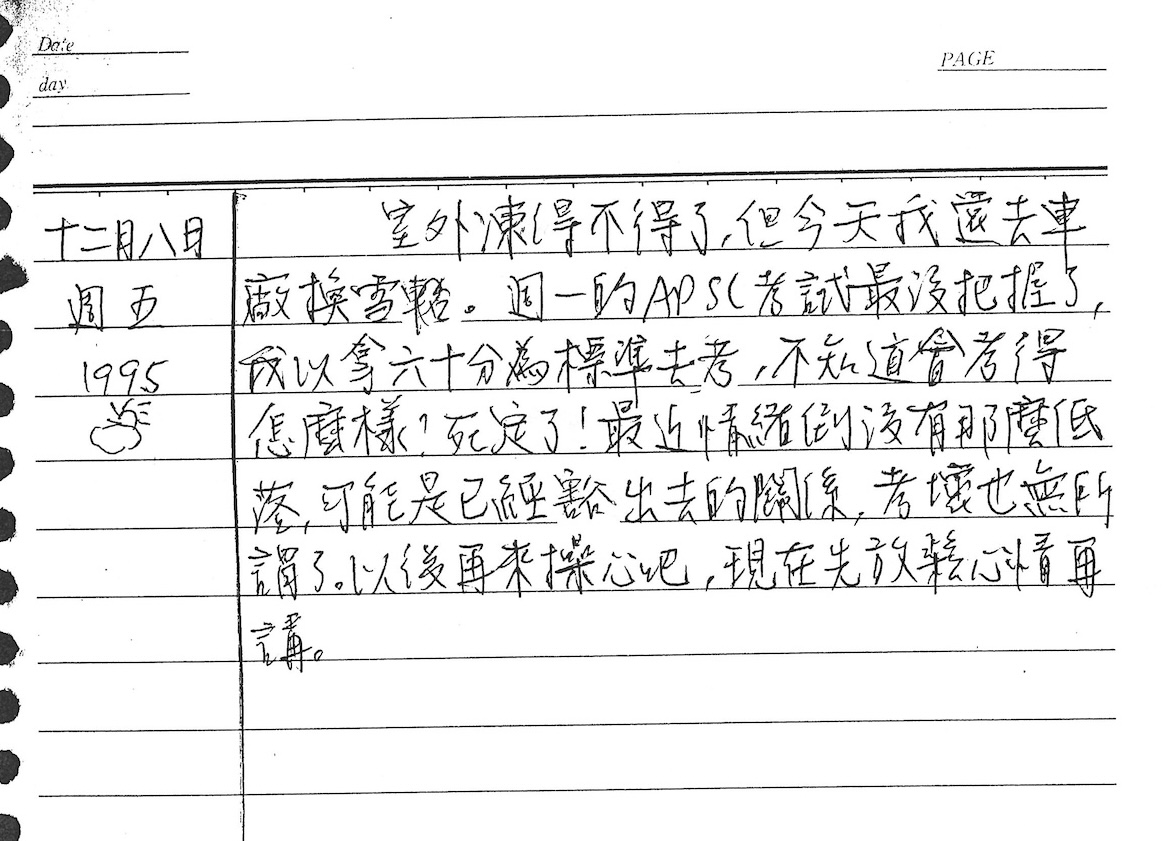 Date
day
PAGE
十二月八日
週五
1995
室外凍得不得了,但今天我還去車
廠換雪輪。週一的APSC考試最沒把握了,
我以拿六十分為標準去考,不知道會考得
怎麼樣?死定了!最近情緒倒沒有那麼低
落,可能是已經豁出去的關係,考壞也無所
謂了。以後再來操心吧,現在先放鬆心情再
講。